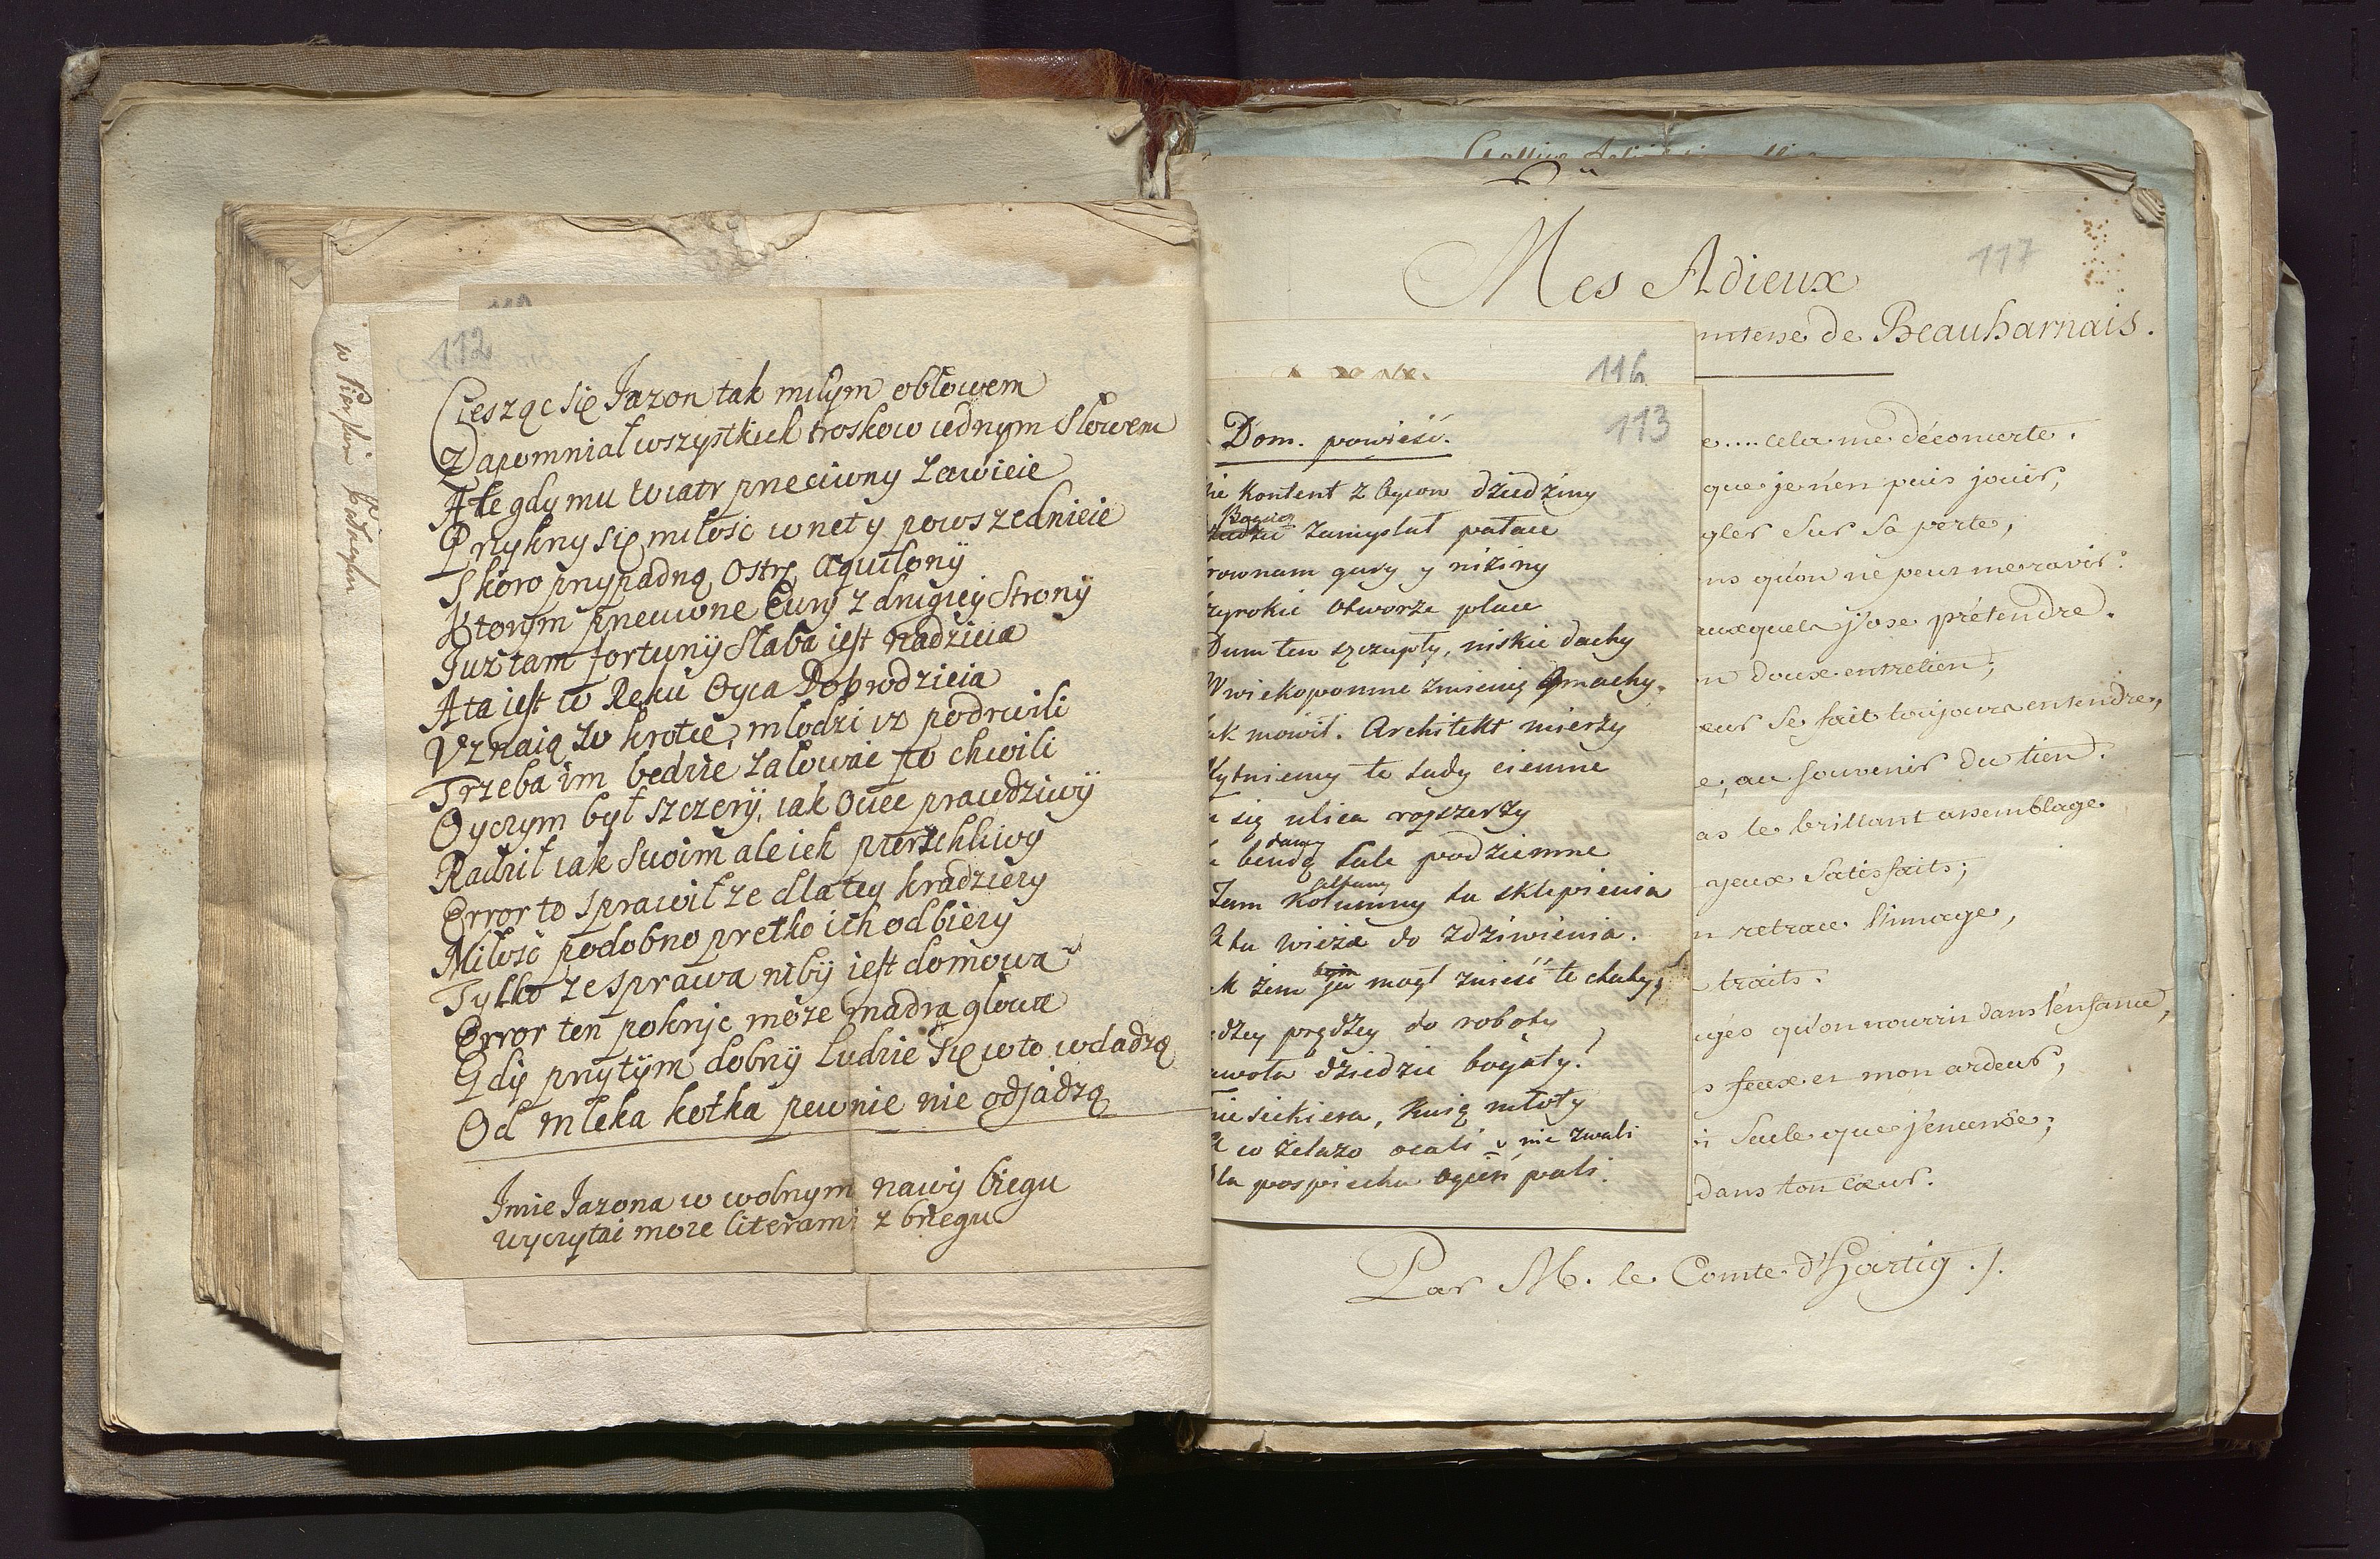 112
Ciesząc się Jazon tak miłym obłowem
Zapomniał wszystkich troskow iednym Słowem
Ale gdy mu wiatr przeciwny zawieie
Przykny się miłość wnet y powszednieie
Skoro przypadną Ostre Aquilony
Ktorym przeciwne Eury z drugiey Strony
Już tam fortuny Słaba iest nadzieia
A ta iest w Ręku Oyca Dobrodzieia
Uznaią w krotce, młodzi iż podrwili
Trzeba im będzie załować po chwili
Oyczym był szczery, iak Ociec prawdziwy
Radził iak Swoim ale ich pierzchliwy
Error to sprawił ze dla tey kradzieży
Miłość podobno prętko ich odbieży
Tylko ze sprawa niby iest domowa
Error ten pokryć może mądra głowa
Gdy przytym dobry ludzie się w to wdadzą
Od mleka kotka pewnie nie odjadzą
Imie Jazona w wolnym nawy biegu
wyczytai może literami z brzegu
Mes Adieux
117
de Beauharnais.
116
113
Dom. powieść.
kontent z Oycow dziedziny
Bogacz
zamyslał pałace
gury y niziny
otworze place
Dum ten szczupły, niskie dachy
W wiekopomne zmienię Gmachy.
mowił. Architekt mierzy
te sady ciemne
się ulica rozszerzy
damy
bendą sale podziemne
altany
Tam kolumny tu sklepienia
A tu wieża do zdziwienia.
żem ja mogł znieść te chaty,
prędzey do roboty
dziedzic bogaty!
siekiera, młoty
A co żelazo ocali y nie zwali
pospiechu ogień pali.
cela me déconcerte.
que je n'en puis jouir,
sur sa perte,
qu'on ne peut me ravir.
j'ose prétendre.
doux entretien;
se fait toujours entendre,
au souvenir du tien.
le brillant assemblage
yeux satisfaits;
retrace l'image,
traits.
qu'on nourrit dans l'enfance,
feux et mon ardeur,
seule que j'encense;
dans ton cœur.
Par M. le Comte d'Hartig.